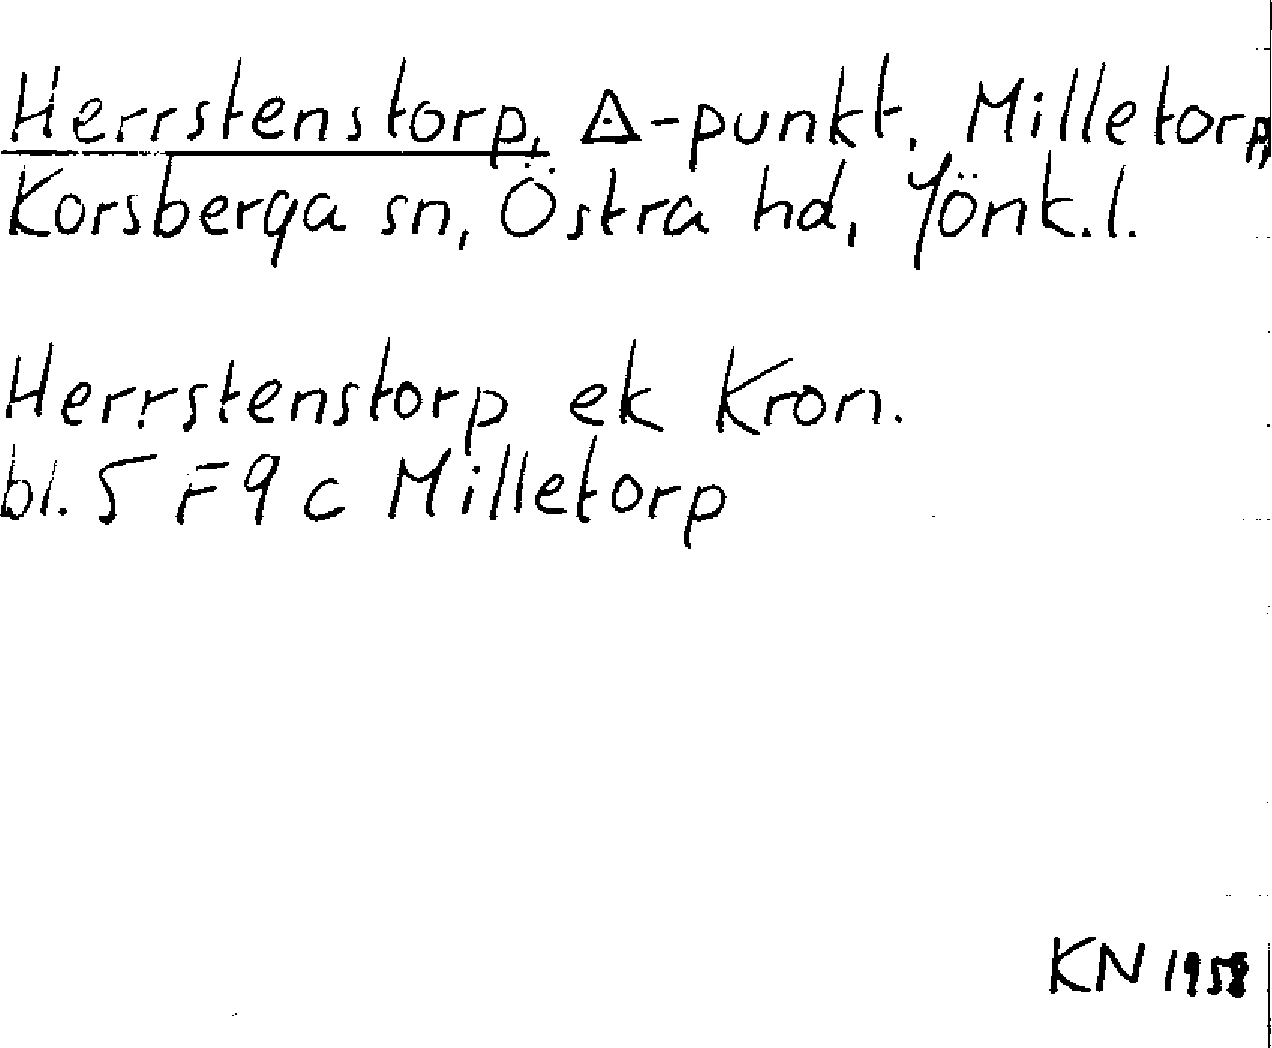 Herrstenstorp, △-punkt. Milletorp,
Korsberga sn, Östra hd, Jönk.l.
Herrstenstorp ek Kron.
bl. 5 F 9 c Milletorp
KN 1958